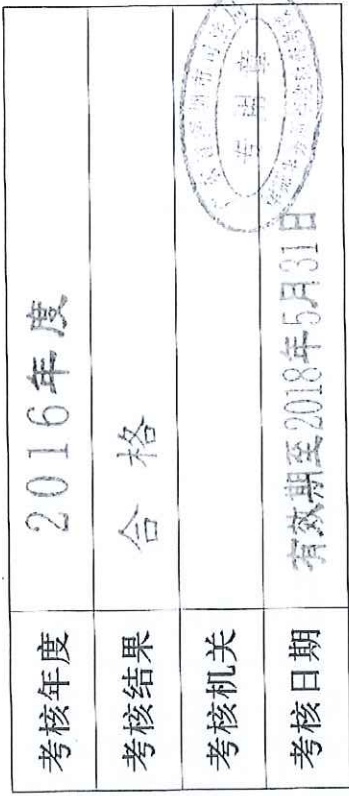 考核年度 2016年度
考核结果 合格
考核机关
考核日期 有效期至2018年5月31日
专用章